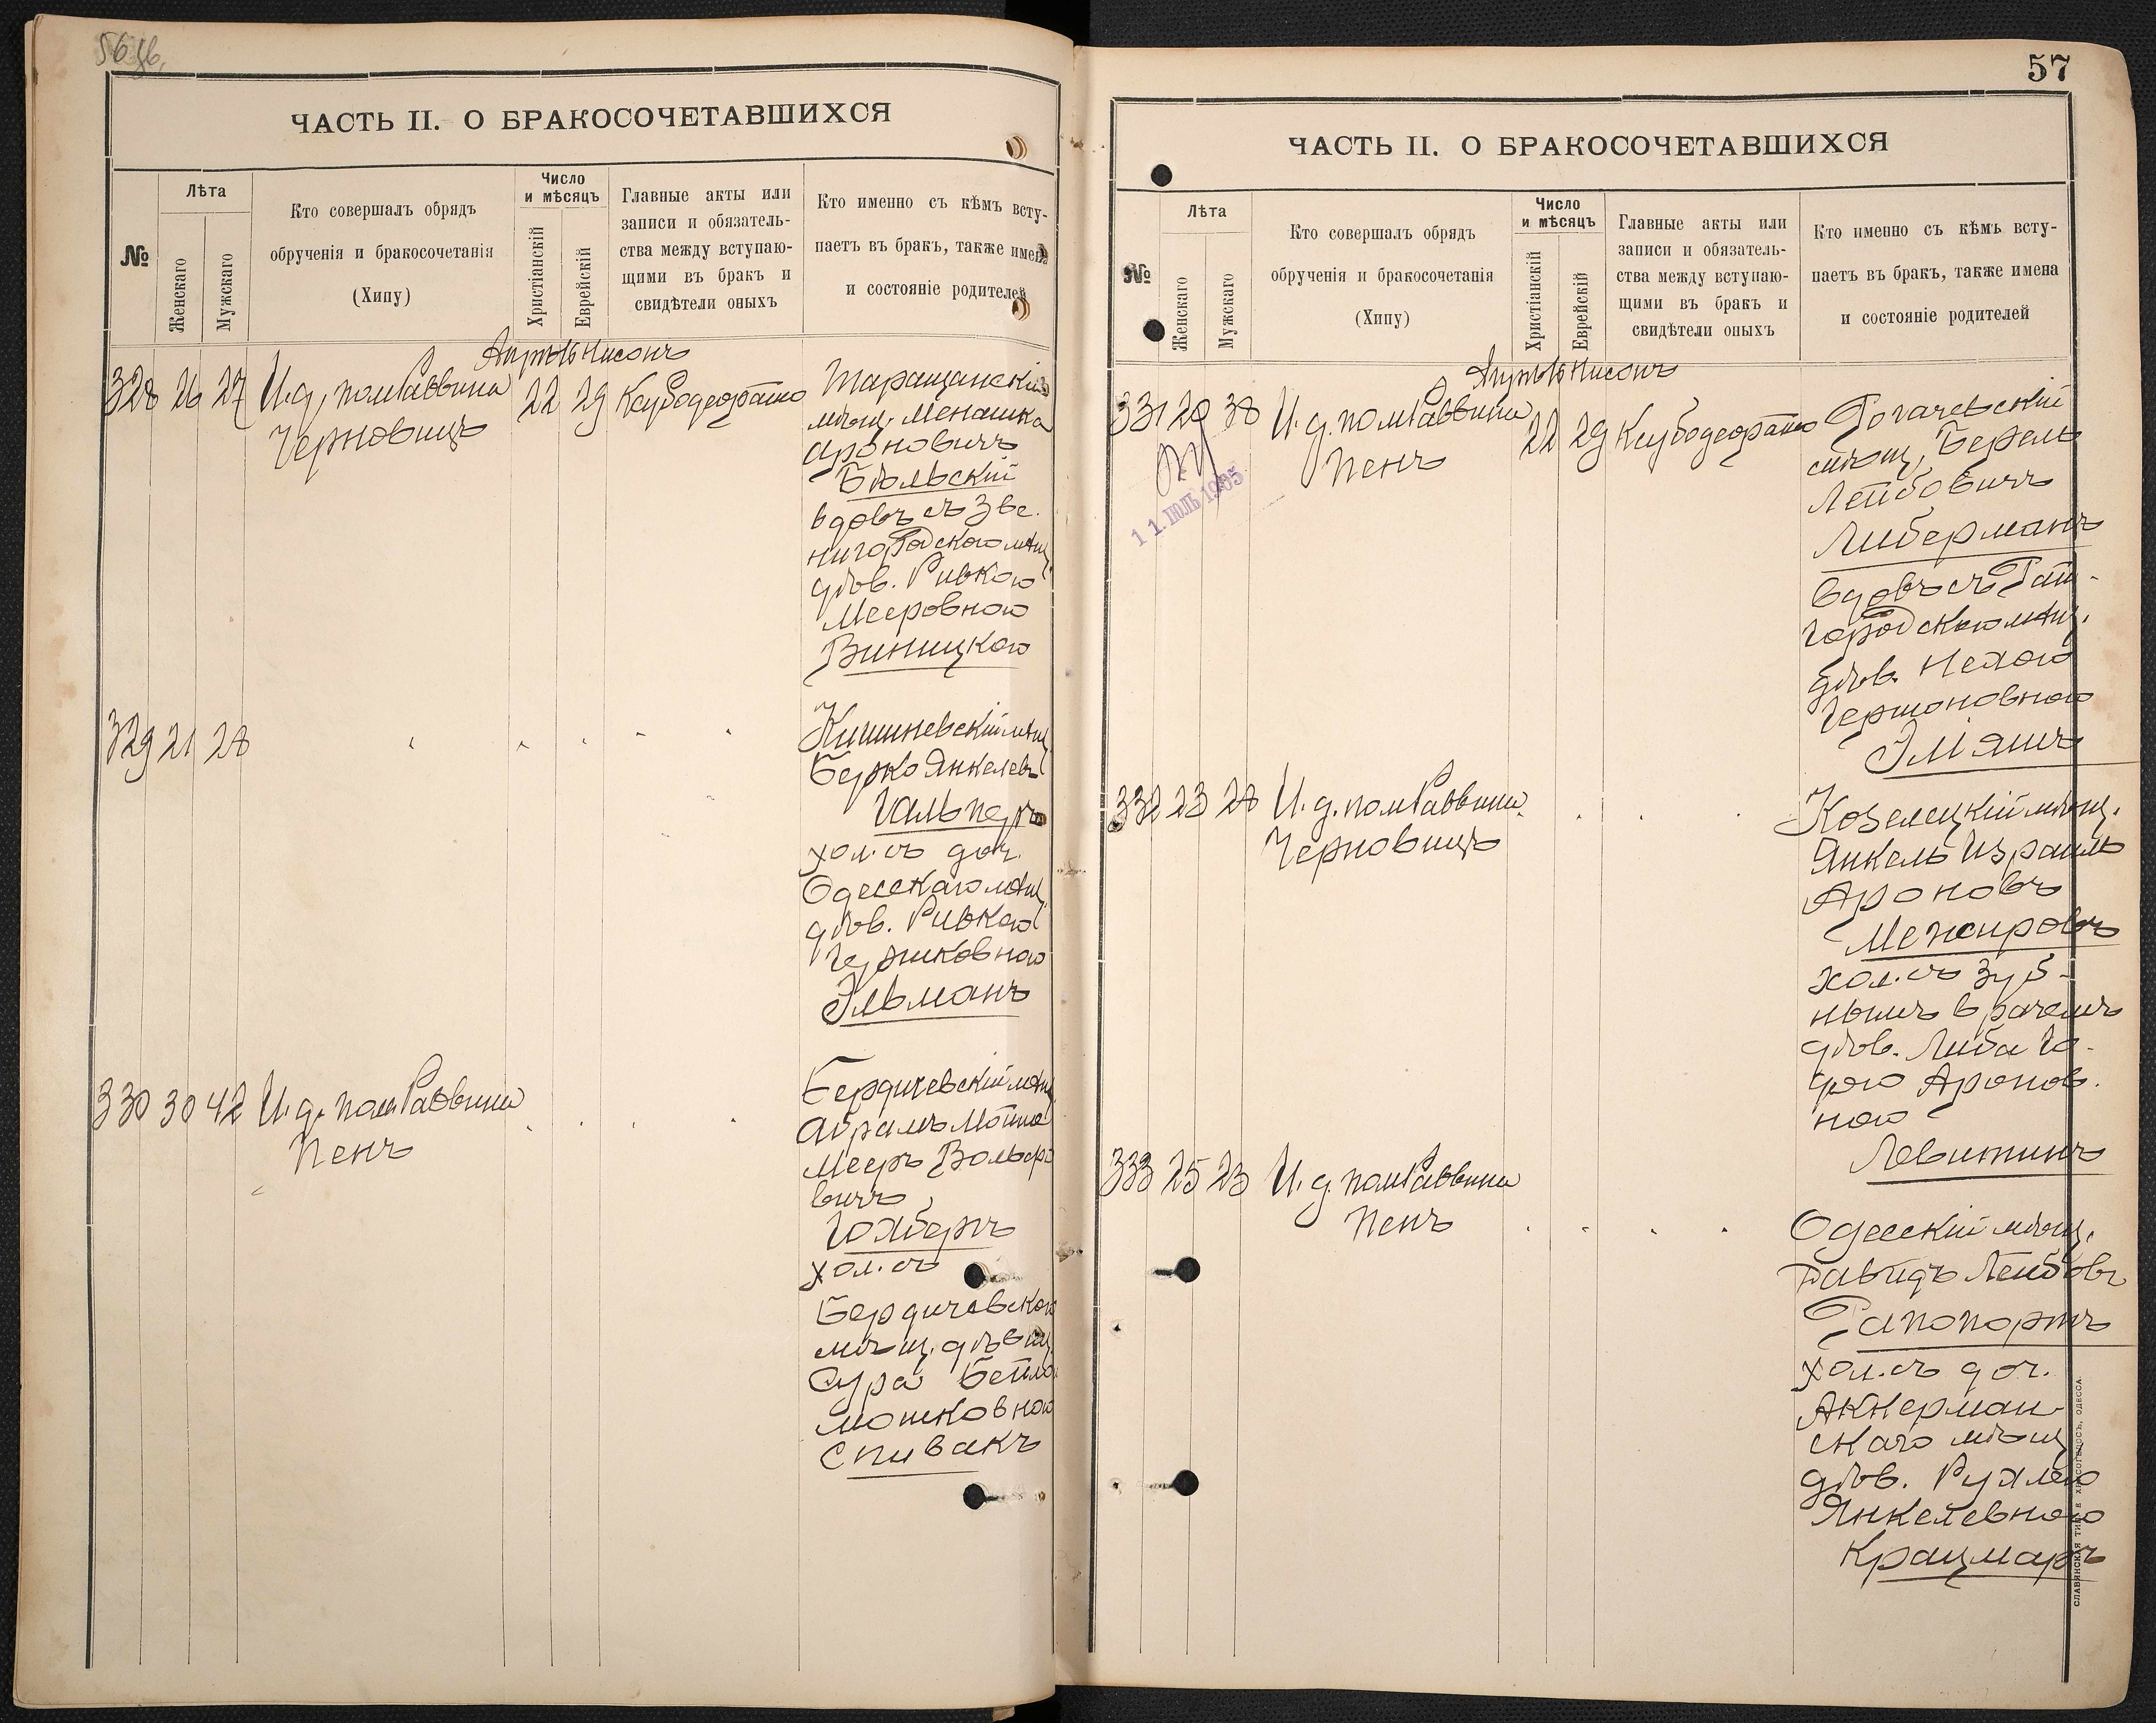 ЧАСТЬ II. О БРАКОСОЧЕТАВШИХСЯ
№
Лѣта
Женскаго
Мужскаго
Кто совершалъ обрядъ
обрученія и бракосочетанія
(Хипу)
Число
и мѣсяцъ
Христіанскій
Еврейскій
Главные акты или
записи и обязатель-
ства между вступаю-
щими въ бракъ и
свидѣтели оныхъ
Кто именно съ кѣмъ всту-
паетъ въ бракъ, также имена
и состояніе родителей
328 26 27 И. д. пом Раввина 22 29 Таращанскій
Черновицъ
мѣщ. Менашка
Ароновичъ
Бѣльскій
вдовъ съ Зве-
нигородскою мѣщ.
дѣв. Ривкою
Мееровною
Виницкою
329 21 28
Кишиневскій мѣщ.
Берко Янкелевъ
Гальперъ
хол. съ доч.
Одесскаго мѣщ.
дѣв. Ривкою
Эльманъ
330 30 42 И. д. пом Раввина
Пенъ
Бердичевскій мѣщ.
Абрамъ
Мееръ
вичъ
хол. съ
Бердичевскою
мѣщ. дѣвиц.
Сура Бейла
Мошковною
Спивакъ
57
ЧАСТЬ II. О БРАКОСОЧЕТАВШИХСЯ
№
Лѣта
Женскаго
Мужскаго
Кто совершалъ обрядъ
обрученія и бракосочетанія
(Хипу)
Число
и мѣсяцъ
Христіанскій
Еврейскій
Главные акты или
записи и обязатель-
ства между вступаю-
щими въ бракъ и
свидѣтели оныхъ
Кто именно съ кѣмъ всту-
паетъ въ бракъ, также имена
и состояніе родителей
331 20 38 И. д. пом Раввина 22 29 Рогачевскій
Пенъ
11. ІЮЛЬ 1905
мѣщ. Берель
Лейбовичъ
Либерманъ
вдовъ съ Гай-
городскою мѣщ.
дѣв. Нехою
Гершоновною
Эліяшъ
332 23 28 И. д. пом Раввина
Черновицъ
Козелецкій мѣщ.
Янкель Израиль
Ароновъ
Межировъ
хол. съ зуб-
нымъ врачемъ
дѣв. Либа Го-
дою Аронов-
ною
Левитинъ
333 25 23 И. д. пом Раввина
Пенъ
Одесскій мѣщ.
Давидъ Лейбовъ
Рапопортъ
хол. съ доч.
Аккерман-
скаго мѣщ.
дѣв. Рухлею
Янкелевною
Крацмаръ